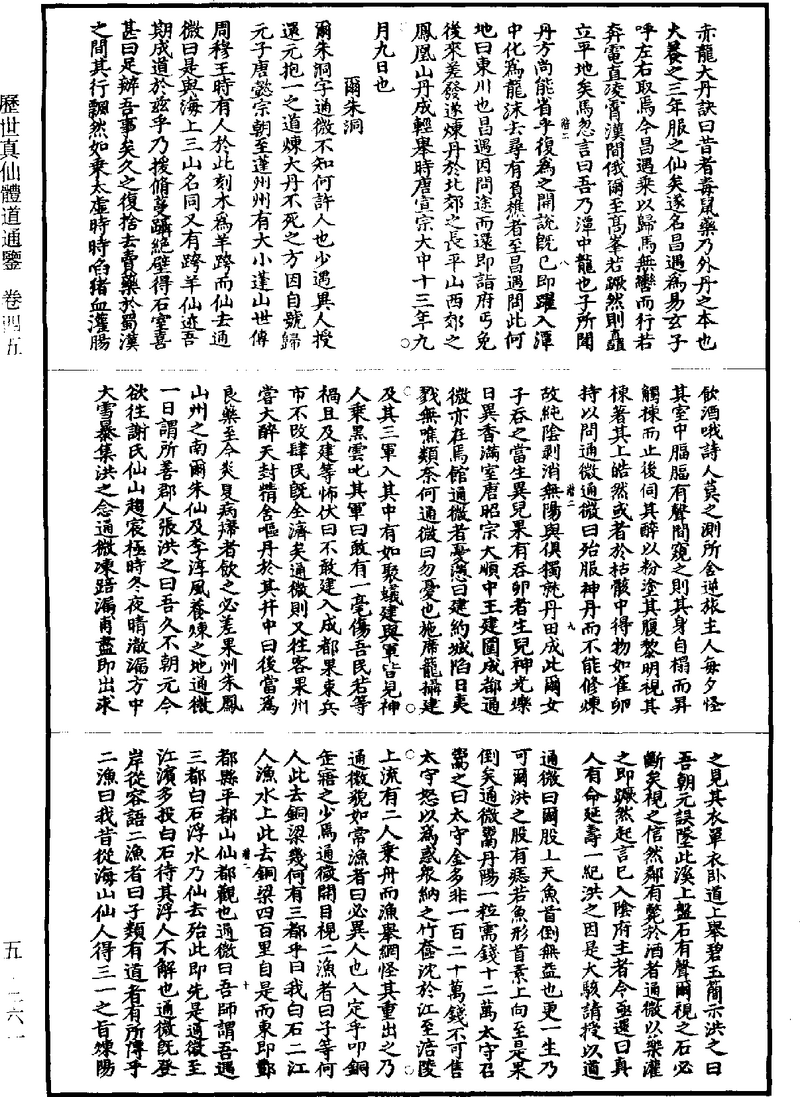 歷世真仙體道通鑒　卷四五
五－二六一
赤龍大丹訣曰昔者毒鼠藥乃外丹之本也
犬養之三年服之仙矣遂名昌遇為易玄子
呼左右取馬令昌遇乘以歸馬無轡而行若
奔電直凌霄漢間俄爾至高峯若蹶然則矗
立平地矣馬忽言曰吾乃潭中龍也子所聞
丹方尚能省乎復為之開說旣已即躍入潭
中化為龍沫去尋有負樵者至昌遇問此何
地曰東川也昌遇因問途而還即詣府丐免
後來差發遂煉丹於北郊之長平山西郊之
鳳凰山丹成輕舉時唐宣宗大中十三年九
月九日也
爾朱洞
爾朱洞字通微不知何許人也少遇異人授
還元抱一之道煉大丹不死之方因自號歸
元子唐懿宗朝至蓬州州有大小蓬山世傳
周穆王時有人於此刻木為羊跨而仙去通
微曰是與海上三山名同又有跨羊仙迹吾
期成道於茲乎乃援脩蔓躡絕壁得石室喜
甚曰足辦吾事矣久之復捨去賣藥於蜀漢
之間其行飄然如乘太虛時時啗猪血灌腸
飲酒哦詩人莫之測所舍逆旅主人每夕怪
其室中膈膈有聲間窺之則其身自榻而昇
觸棟而止後伺其醉以粉塗其腹黎明視其
棟著其上皓然或者於枯骸中得物如雀卵
持以問通微通微曰殆服神丹而不能修煉
故純陰剥消無陽與俱獨就丹田成此爾女
子吞之當生異兒果有吞卵者生兒神光爍
日異香滿室唐昭宗大順中王建圍成都通
微亦在焉館通微者憂懣曰建約城陷日夷
戮無噍類奈何通微曰勿憂也施席籠攝建
及其三軍入其中有如聚蟻建與軍皆見神
人乘黑雲叱其軍曰敢有一毫傷吾民若等
禍且及建等怖伏曰不敢建入成都果束兵
市不改肆民旣全濟矣通微則又往客果州
當大醉天封精舍嘔丹於其井中曰後當為
良藥至今炎夏病㿃者飲之必差果州朱鳳
山州之南爾朱仙及李淳風養煉之地通微
一日謂所善郡人張洪之曰吾久不朝元今
欲往謝氏仙山趨宸極時冬夜晴澈漏方中
大雪暴集洪之念通微凍踣漏甫盡即出求
之見其衣單衣卧道上舉碧玉簡示洪之曰
吾朝元誤墜此溪上盤石有聲爾視之石必
斷矣視之信然鄰有斃於酒者通微以藥灌
之即蹶然起言已入陰府主者令亟還曰真
人有命延壽一紀洪之因是大駭請授以道
通微曰爾股上天魚首倒無益也更一生乃
可爾洪之股有痣若魚形首素上向至是果
倒矣通微鬻丹陽一粒需錢十二萬太守召
鬻之曰太守金多非一百二十萬錢不可售
太守怒以為惑衆納之竹𥬠沈於江至涪陵
上流有二人乘舟而漁舉網怪其重出之乃
通微貌如常漁者曰必異人也入定乎叩銅
缶寤之少焉通微開目視二漁者曰子等何
人此去銅梁幾何有三都乎曰我白石二江
人漁水上此去銅梁四百里自是而東即酆
都縣平都山仙都觀也通微曰吾師謂吾遇
三都白石浮水乃仙去殆此即先是通微至
江濱多投白石待其浮人不解也通微旣登
岸從容語二漁者曰子類有道者有所傳乎
二漁曰我昔從海山仙人得三一之旨煉陽